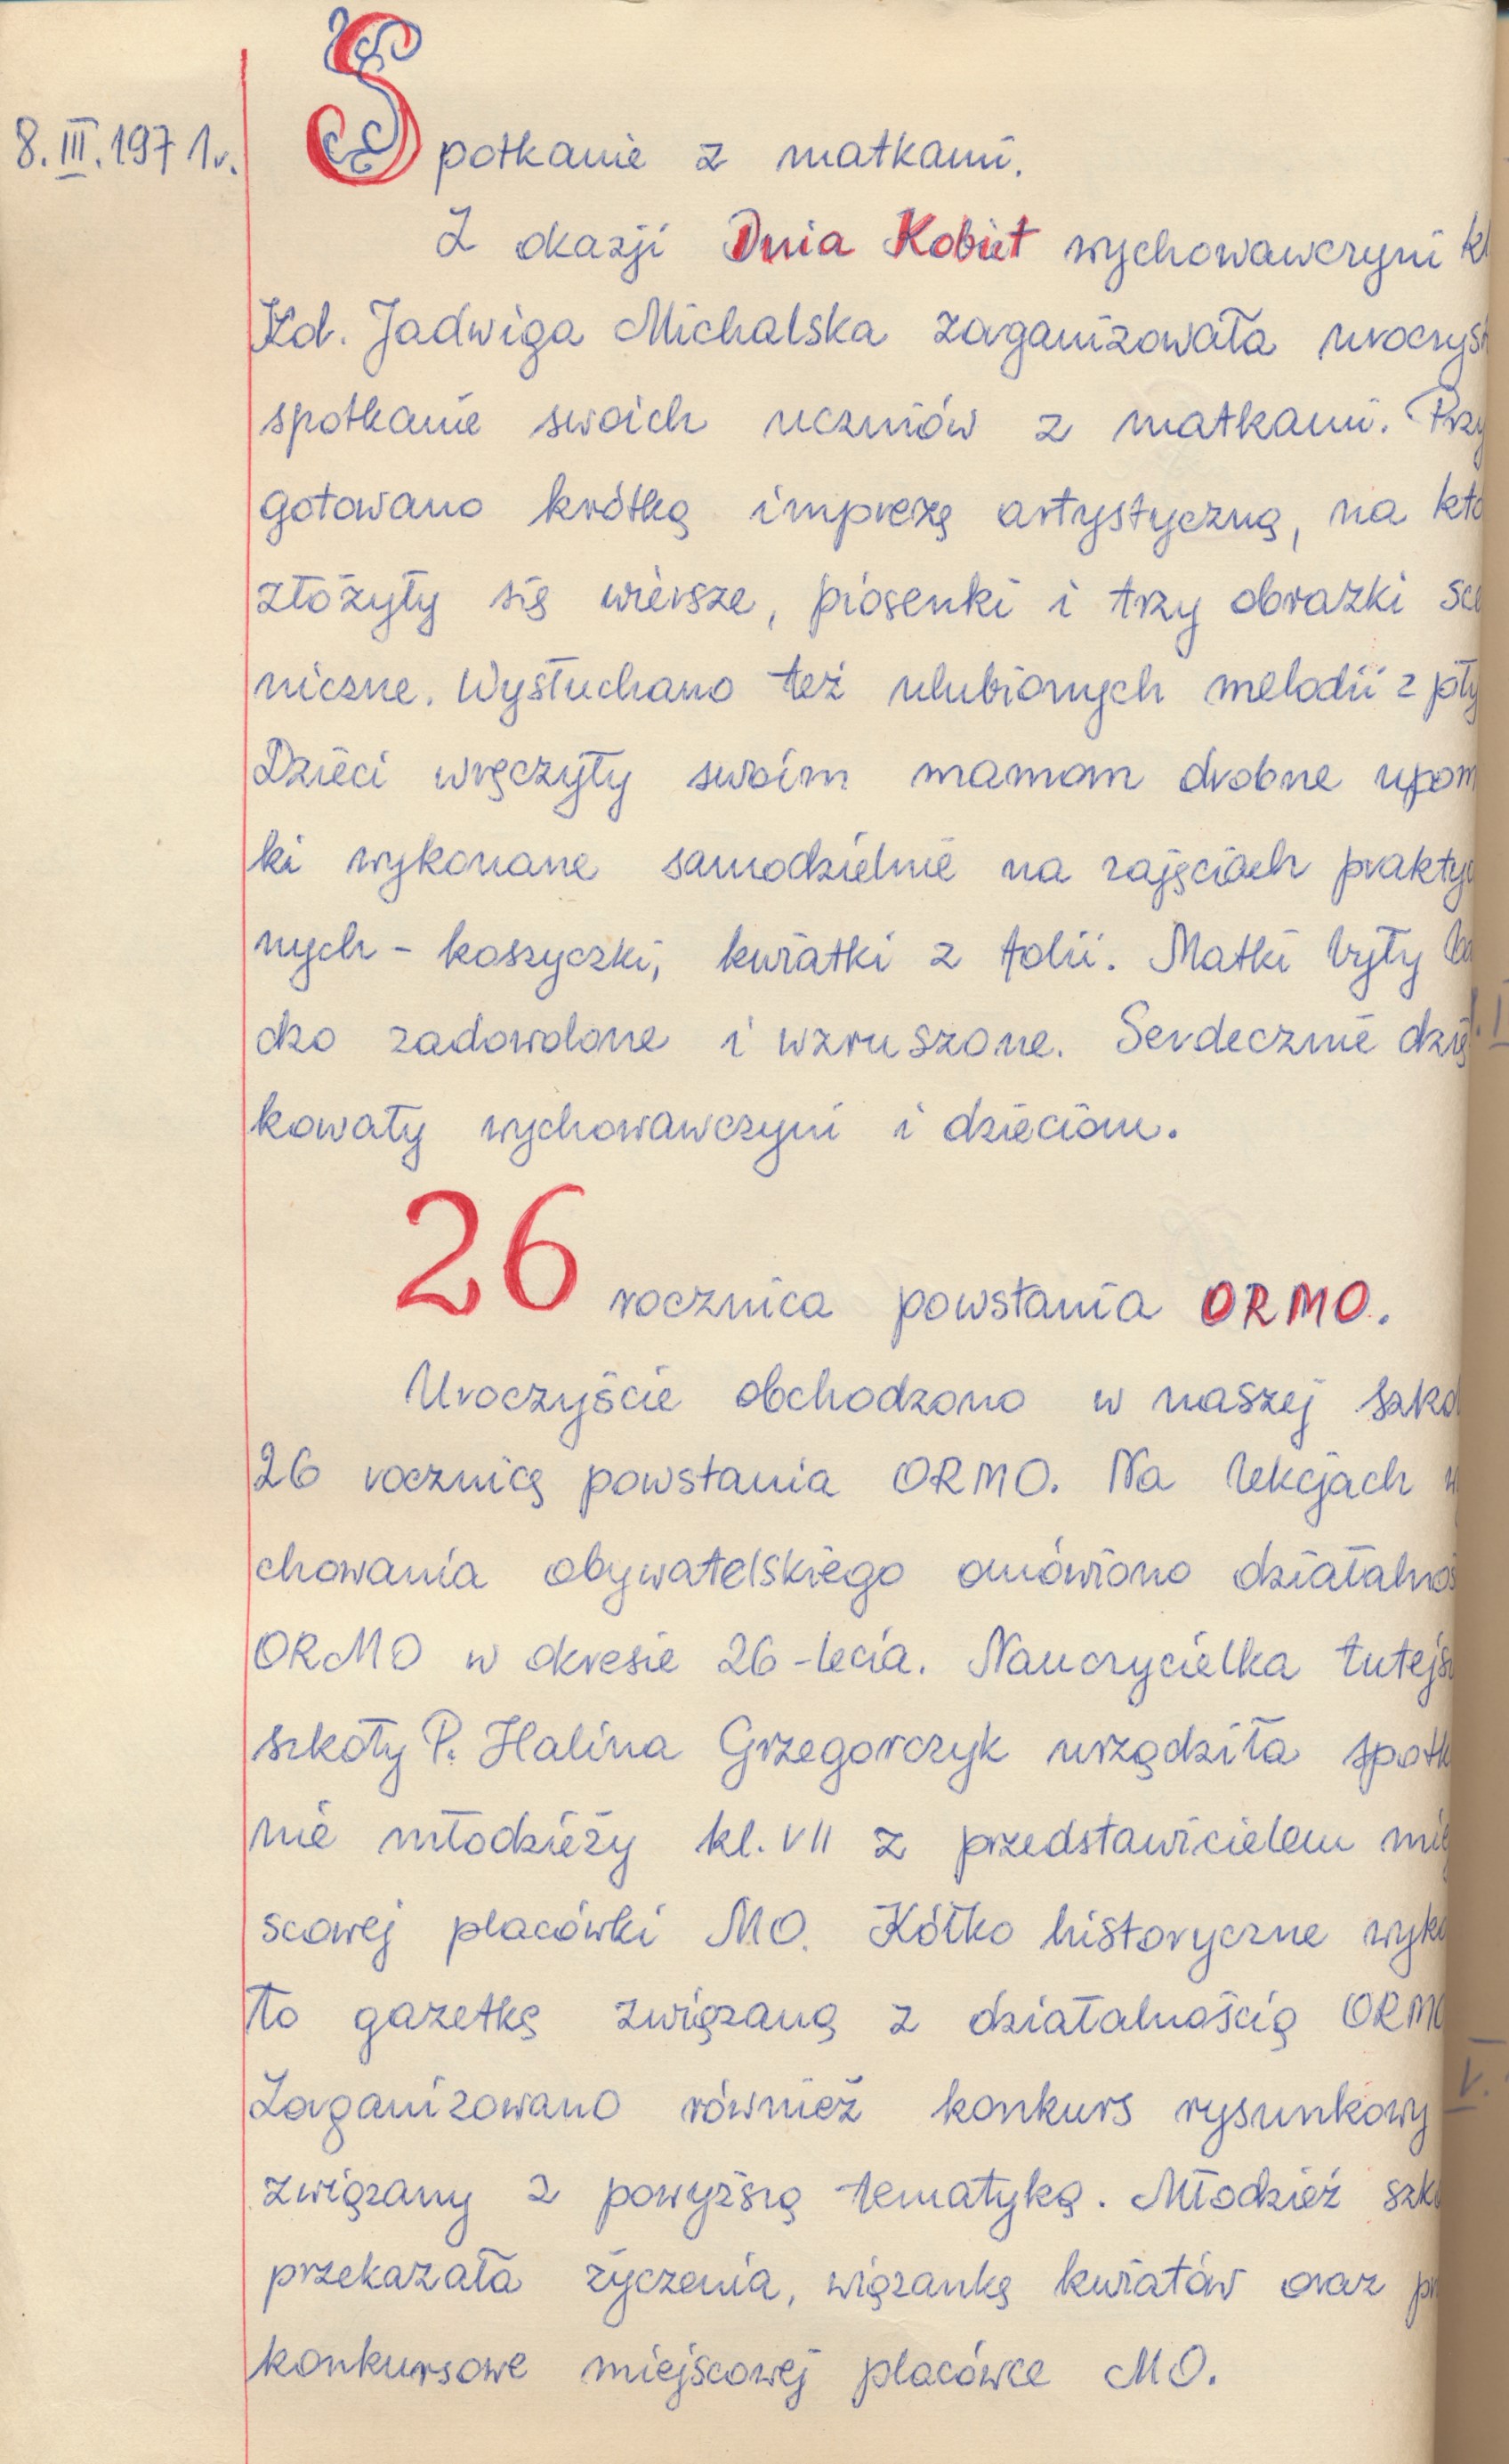 8.III.1971r.
Spotkanie z matkami.
Z okazji Dnia Kobiet wychowawczyni kl
Kol. Jadwiga Michalska zorganizowała uroczyst
spotkanie swoich uczniów z matkami. Przy
gotowano krótką imprezę artystyczną, na któ
złożyły się wiersze, piosenki i trzy obrazki sce
niczne. Wysłuchano też ulubionych melodii z pły
Dzieci wręczyły swoim mamom drobne upom
ki wykonane samodzielnie na zajęciach prakty
nych - koszyczki, kwiatki z folii. Matki były ba
dzo zadowolone i wzruszone. Serdecznie dzię
kowały wychowawczyni i dzieciom.
26 rocznica powstania ORMO.
Uroczyście obchodzono w naszej szko
26 rocznicę powstania ORMO. Na lekcjach w
chowania obywatelskiego omówiono działalnoś
ORMO w okresie 26-lecia. Nauczycielka tutejs
szkoły P. Halina Grzegorczyk urządziła spotk
nie młodzieży kl. VII z przedstawicielem mie
scowej placówki MO. Kółko historyczne wyko
ło gazetkę związaną z działalnością ORMO
Zorganizowano również konkurs rysunkowy
związany z powyższą tematyką. Młodzież szko
przekazała życzenia, wiązankę kwiatów oraz pr
konkursowe miejscowej placówce MO.